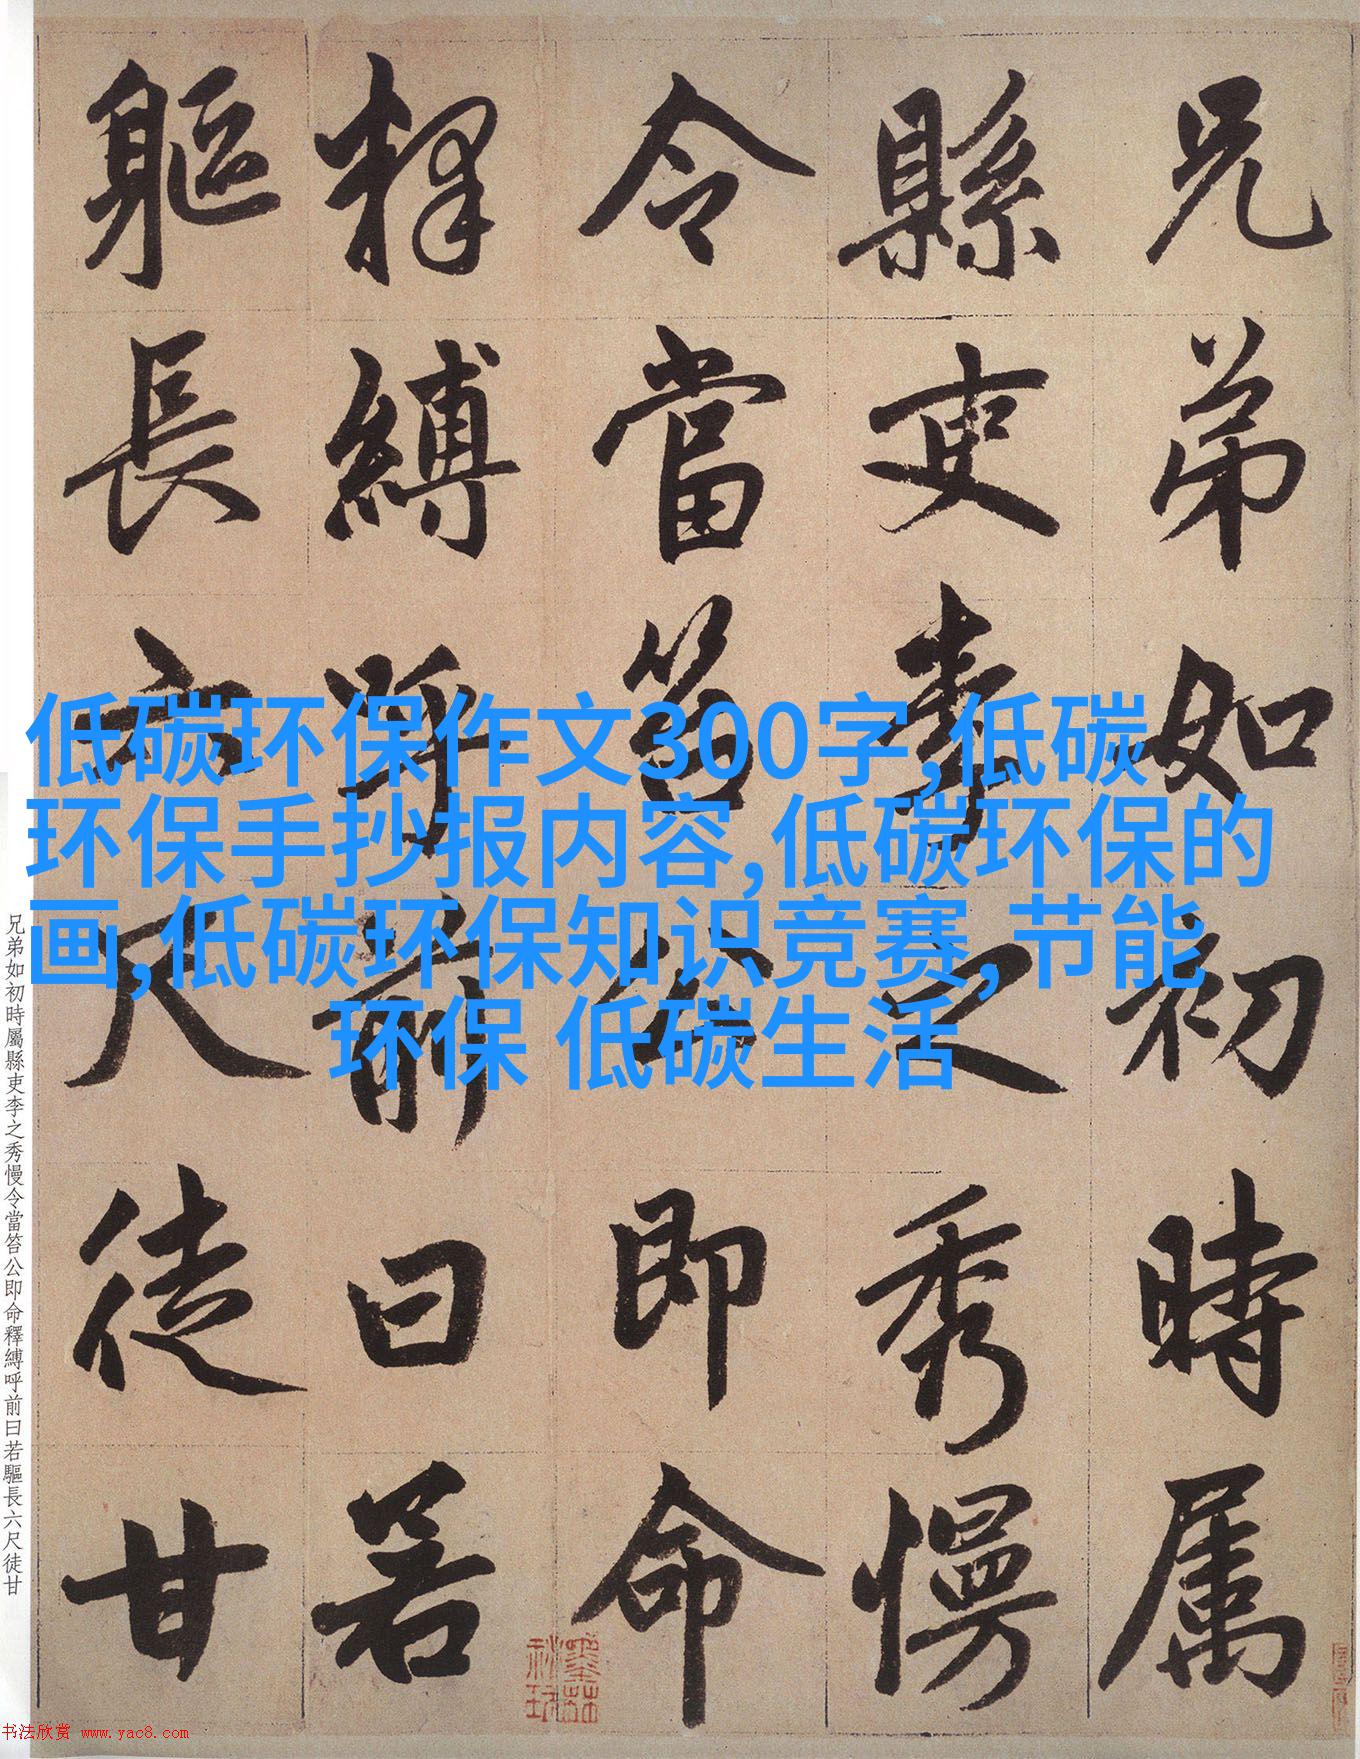 兄弟如初時属
縣吏李之秀慢
令當笞公即命
釋縛呼前曰若
軀長六尺徒甘
低碳环保作文300字,低碳
环保手抄报内容,低碳环保的
画,低碳环保知识竞赛,节能
环保 低碳生活
兄弟如初時屬縣吏李之秀慢令當笞公即命釋縛呼前曰若驅長六尺徒甘
书法欣赏 www.yac8.com